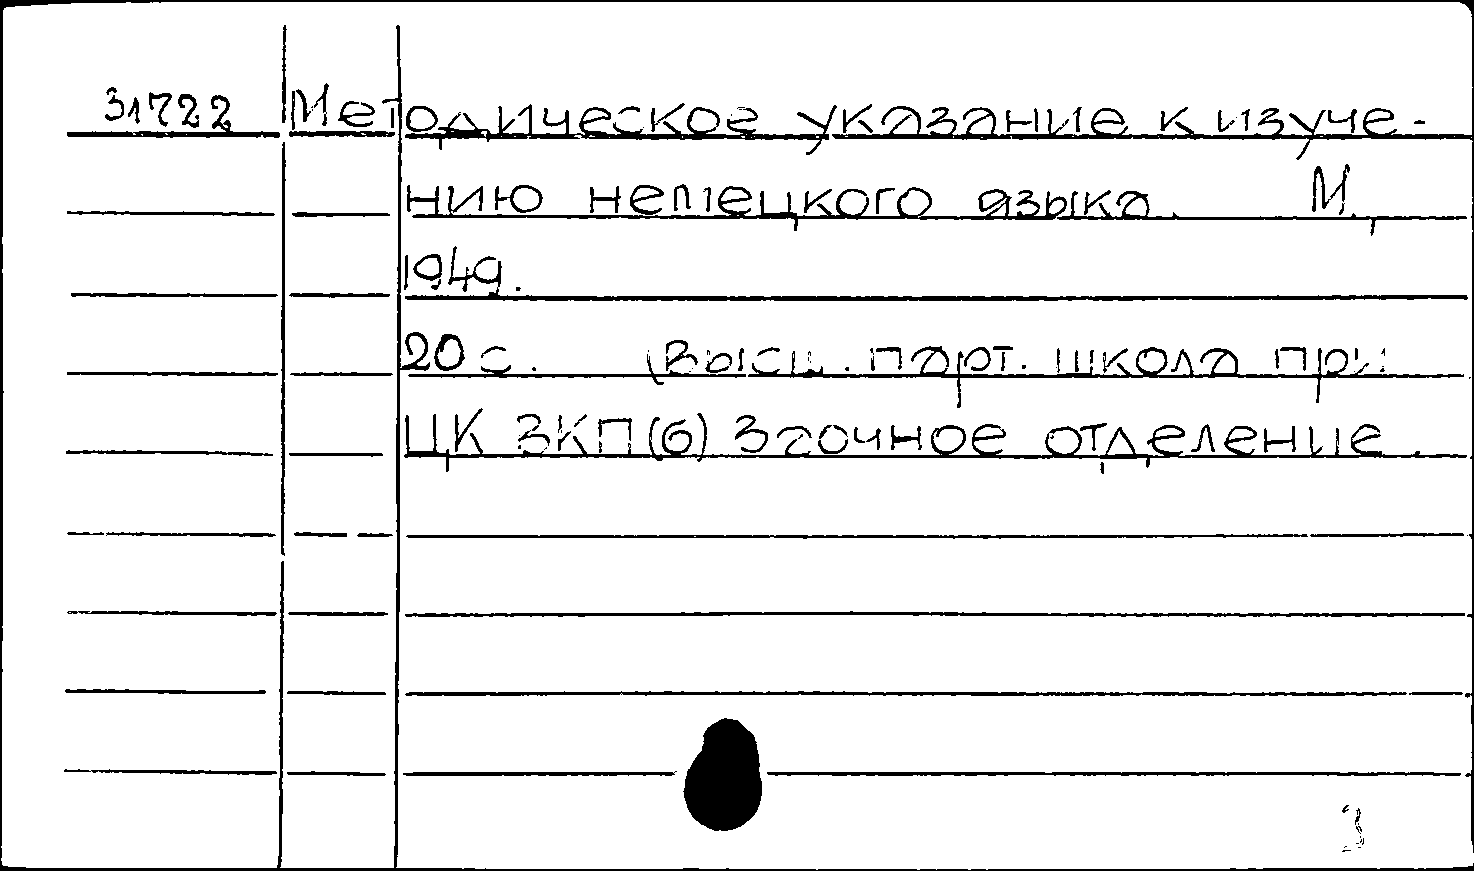 31722 Методическое указание к изуче-
нию немецкого языка. М.,
1949.
20 с. (Высш. парт. школа при
ЦК ВКП(б) Заочное отделение.
3